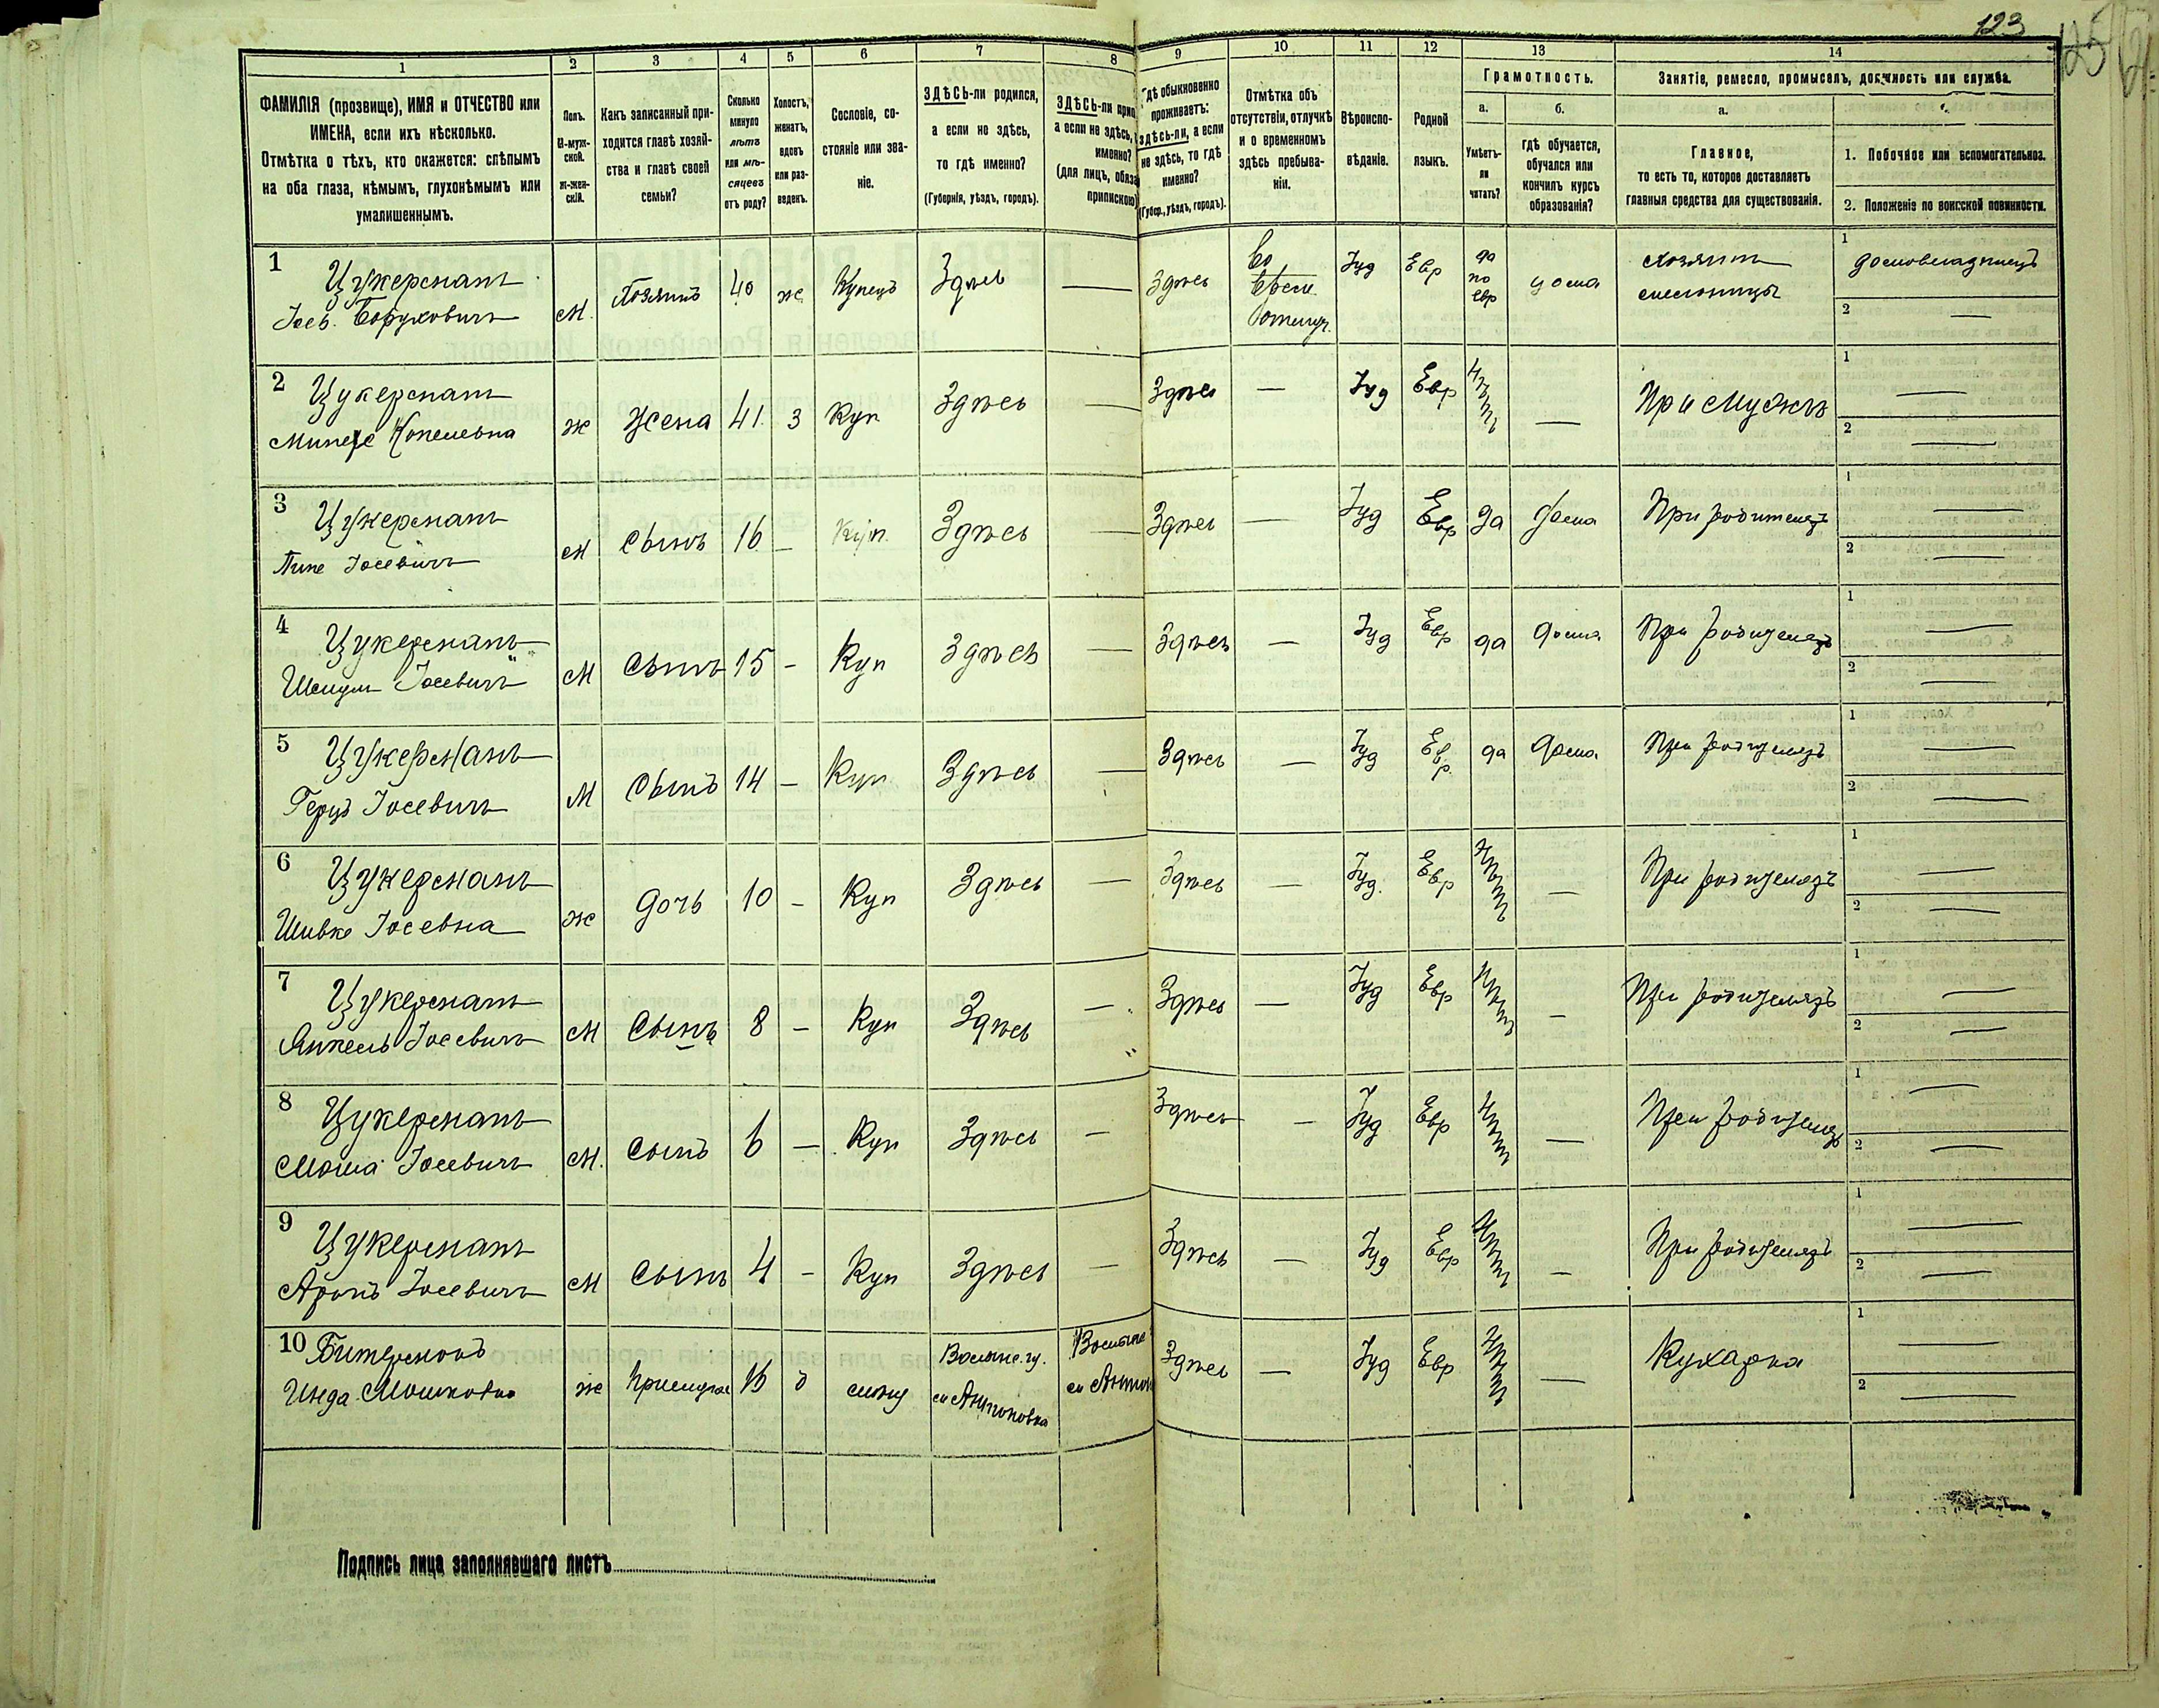 123
1
2
3
4
5
6
7
8
9
10
11
12
13
14
ФАМИЛІЯ (прозвище), ИМЯ и ОТЧЕСТВО или
ИМЕНА, если ихъ нѣсколько.
Отмѣтка о тѣхъ, кто окажется: слѣпымъ
на оба глаза, нѣмымъ, глухонѣмымъ или
умалишеннымъ.
Полъ.
М-муж-
ской.
ж-жен-
скій.
Какъ записанный при-
ходится главѣ хозяй-
ства и главѣ своей
семьи?
Сколько
минуло
лѣтъ
или мѣ-
сяцевъ
отъ роду?
Холостъ,
женатъ,
вдовъ
или раз-
веденъ.
Сословіе, со-
стояніе или зва-
ніе.
ЗДѢСЬ-ли родился,
а если не здѣсь,
то гдѣ именно?
(Губернія, уѣздъ, городъ).
ЗДѢСЬ-ли прип
а если не здѣсь,
именно?
(для лицъ, обяза
припискою)
Гдѣ обыкновенно
проживаетъ:
здѣсь-ли, а если
не здѣсь, то гдѣ
именно?
(Губер., уѣздъ, городъ).
Отмѣтка объ
отсутствіи, отлучкѣ
и о временномъ
здѣсь пребыва-
ніи.
Вѣроиспо-
вѣданіе.
Родной
языкъ.
Грамотность.
а.
б.
Умѣетъ-
ли
читать?
гдѣ обучается,
обучался или
кончилъ курсъ
образованія?
Занятіе, ремесло, промыселъ, должность или служба.
а.
Главное,
то есть то, которое доставляетъ
главныя средства для существованія.
1. Побочное или вспомогательное.
2. Положеніе по воинской повинности.
1 Цукерманъ
Іось Боруховичъ М. Хозяинъ 40 ж Купецъ Здѣсь — Здѣсь Во врем. отлуч. Іуд Евр да по евр дома хозяинъ 1 домовладѣлецъ
2 —
2 Цукерманъ
Копелевна ж Жена 41 З Куп Здѣсь — Здѣсь — Іуд Евр Нѣтъ — При мужѣ 1 —
2 —
3 Цукерманъ
Іосевичъ М Сынъ 16 — Куп. Здѣсь — Здѣсь — Іуд Евр да дома При родителяхъ 1 —
2 —
4 Цукерманъ
Шмуль Іосевичъ М Сынъ 15 — Куп Здѣсь — Здѣсь — Іуд Евр да дома При родителяхъ 1 —
2 —
5 Цукерманъ
Герцъ Іосевичъ М Сынъ 14 — Куп Здѣсь — Здѣсь — Іуд Евр да дома При родителяхъ 1 —
2 —
6 Цукерманъ
Шивке Іосевна ж дочь 10 — Куп Здѣсь — Здѣсь — Іуд. Евр Нѣтъ — При родителяхъ 1 —
2 —
7 Цукерманъ
Янкель Іосевичъ М Сынъ 8 — Куп Здѣсь — Здѣсь — Іуд Евр Нѣтъ — При родителяхъ 1 —
2 —
8 Цукерманъ
Мошка Іосевичъ М. Сынъ 6 — Куп Здѣсь — Здѣсь — Іуд Евр Нѣтъ — При родителяхъ 1 —
2 —
9 Цукерманъ
Аронъ Іосевичъ М Сынъ 4 — Куп Здѣсь — Здѣсь — Іуд Евр Нѣтъ — При родителяхъ 1 —
2 —
10
Мошковна ж Прислуга д Волынс. гу. Антоновка Здѣсь — Іуд Евр Нѣтъ — Кухарка 1 —
2 —
Подпись лица заполнявшаго листъ